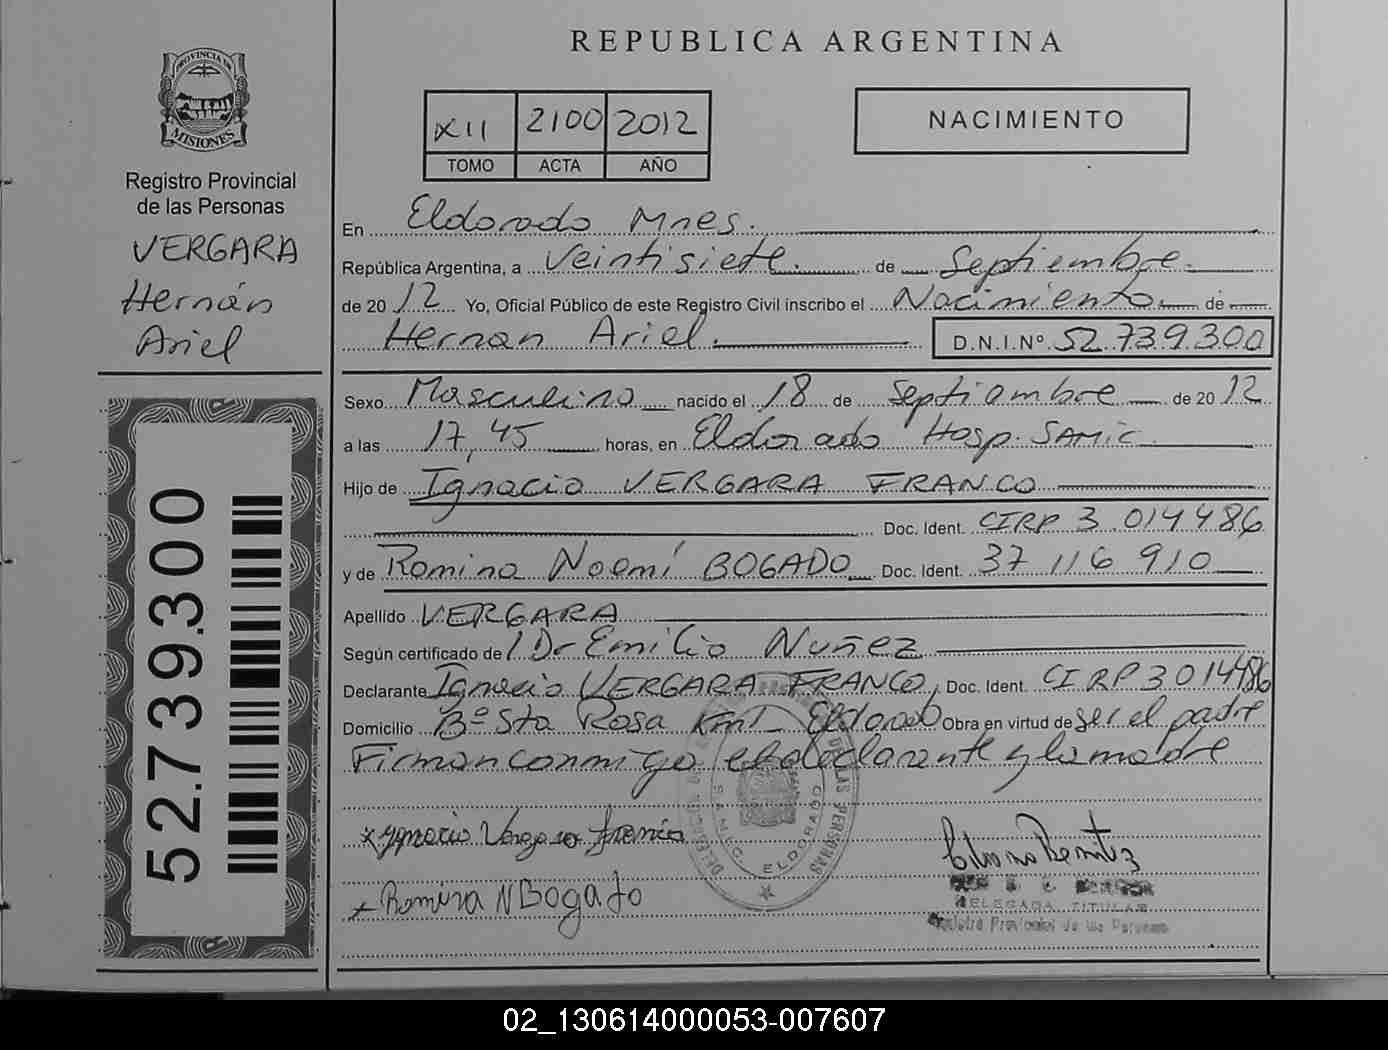 REPUBLICA ARGENTINA
PROVINCIA DE
MISIONES
Registro Provincial
de las Personas
VERGARA
Hernán
Ariel
52.739.300
XII 2100 2012
TOMO ACTA AÑO
NACIMIENTO
En Eldorado Mnes.
República Argentina, a Veintisiete de Septiembre
de 20 12 Yo, Oficial Público de este Registro Civil inscribo el Nacimiento de
Hernan Ariel D.N.I.Nº 52.739.300
Sexo Masculino nacido el 18 de Septiembre de 20 12
a las 17,45 horas, en Eldorado Hosp. SAMIC
Hijo de Ignacio VERGARA FRANCO
Doc. Ident. CIRP 3 014486
y de Romina Noemí BOGADO Doc. Ident. 37 116 910
Apellido VERGARA
Según certificado del Dr Emilio Nuñez
Declarante Ignacio VERGARA FRANCO, Doc. Ident. CI RP 3 014486
Domicilio Bº Sta Rosa Km1 Eldorado Obra en virtud de ser el padre
Firman conmigo el declarante y la madre
x Ignacio Vergara Franco
x Romina N Bogado
DE LAS PERSONAS
ELDORADO
Benitez
DELEGADA TITULAR
Registro Provincial de las Personas
02_130614000053-007607